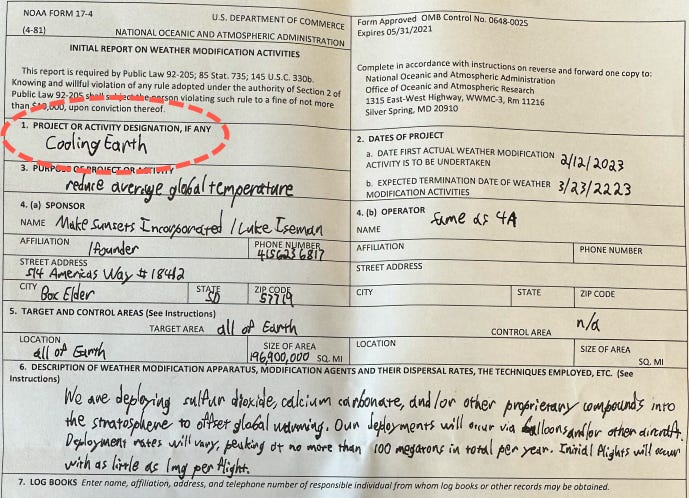 NOAA FORM 17-4
(4-81)
U.S. DEPARTMENT OF COMMERCE
NATIONAL OCEANIC AND ATMOSPHERIC ADMINISTRATION
INITIAL REPORT ON WEATHER MODIFICATION ACTIVITIES
This report is required by Public Law 92-205; 85 Stat. 735; 145 U.S.C. 330b.
Knowing and willful violation of any rule adopted under the authority of Section 2 of
Public Law 92-205 shall subject the person violating such rule to a fine of not more
than $10,000, upon conviction thereof.
Form Approved OMB Control No. 0648-0025
Expires 05/31/2021
Complete in accordance with instructions on reverse and forward one copy to:
National Oceanic and Atmospheric Administration
Office of Oceanic and Atmospheric Research
1315 East-West Highway, WWMC-3, Rm 11216
Silver Spring, MD 20910
1. PROJECT OR ACTIVITY DESIGNATION, IF ANY
Cooling Earth
2. DATES OF PROJECT
a. DATE FIRST ACTUAL WEATHER MODIFICATION
ACTIVITY IS TO BE UNDERTAKEN
2/12/2023
b. EXPECTED TERMINATION DATE OF WEATHER
MODIFICATION ACTIVITIES
3/23/2223
3. PURPOSE OF PROJECT OR ACTIVITY
reduce average global temperature
4. (a) SPONSOR
NAME Make Sunsets Incorporated / Luke Iseman
AFFILIATION
/founder
PHONE NUMBER
4156236817
STREET ADDRESS
514 Americas Way #18412
CITY
Box Elder
STATE
SD
ZIP CODE
57719
4. (b) OPERATOR
NAME
same as 4A
AFFILIATION
PHONE NUMBER
STREET ADDRESS
CITY
STATE
ZIP CODE
5. TARGET AND CONTROL AREAS (See Instructions)
TARGET AREA all of Earth
CONTROL AREA n/a
LOCATION
all of Earth
SIZE OF AREA
196,900,000 SQ. MI
LOCATION
SIZE OF AREA
SQ. MI
6. DESCRIPTION OF WEATHER MODIFICATION APPARATUS, MODIFICATION AGENTS AND THEIR DISPERSAL RATES, THE TECHNIQUES EMPLOYED, ETC. (See
Instructions)
We are deploying sulfur dioxide, calcium carbonate, and/or other proprietary compounds into
the stratosphere to offset global warming. Our deployments will occur via balloons and/or other aircraft.
Deployment rates will vary, peaking at no more than 100 megatons in total per year. Initial flights will occur
with as little as 1mg per flight.
7. LOG BOOKS Enter name, affiliation, address, and telephone number of responsible individual from whom log books or other records may be obtained.